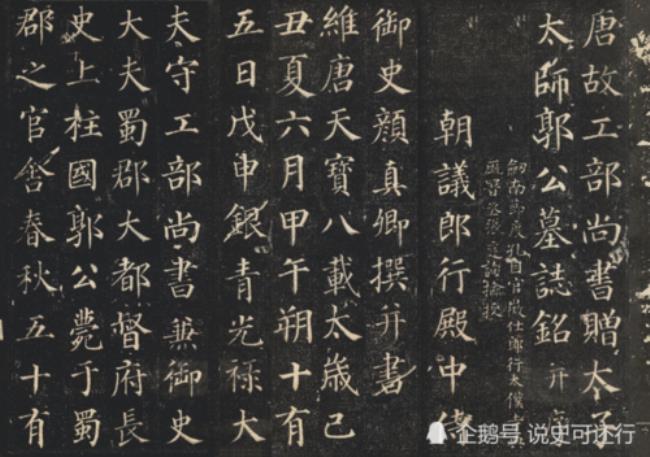 唐故工部尚書贈太子
太師郭公墓誌銘并序
朝議郎行殿中侍
御史顏真卿撰并書
維唐天寶八載太歲己
丑夏六月甲午朔十有
五日戊申銀青光祿大
夫守工部尚書兼御史
大夫蜀郡大都督府長
史上柱國郭公薨于蜀
郡之官舍春秋五十有
企鹅号 说史可还行